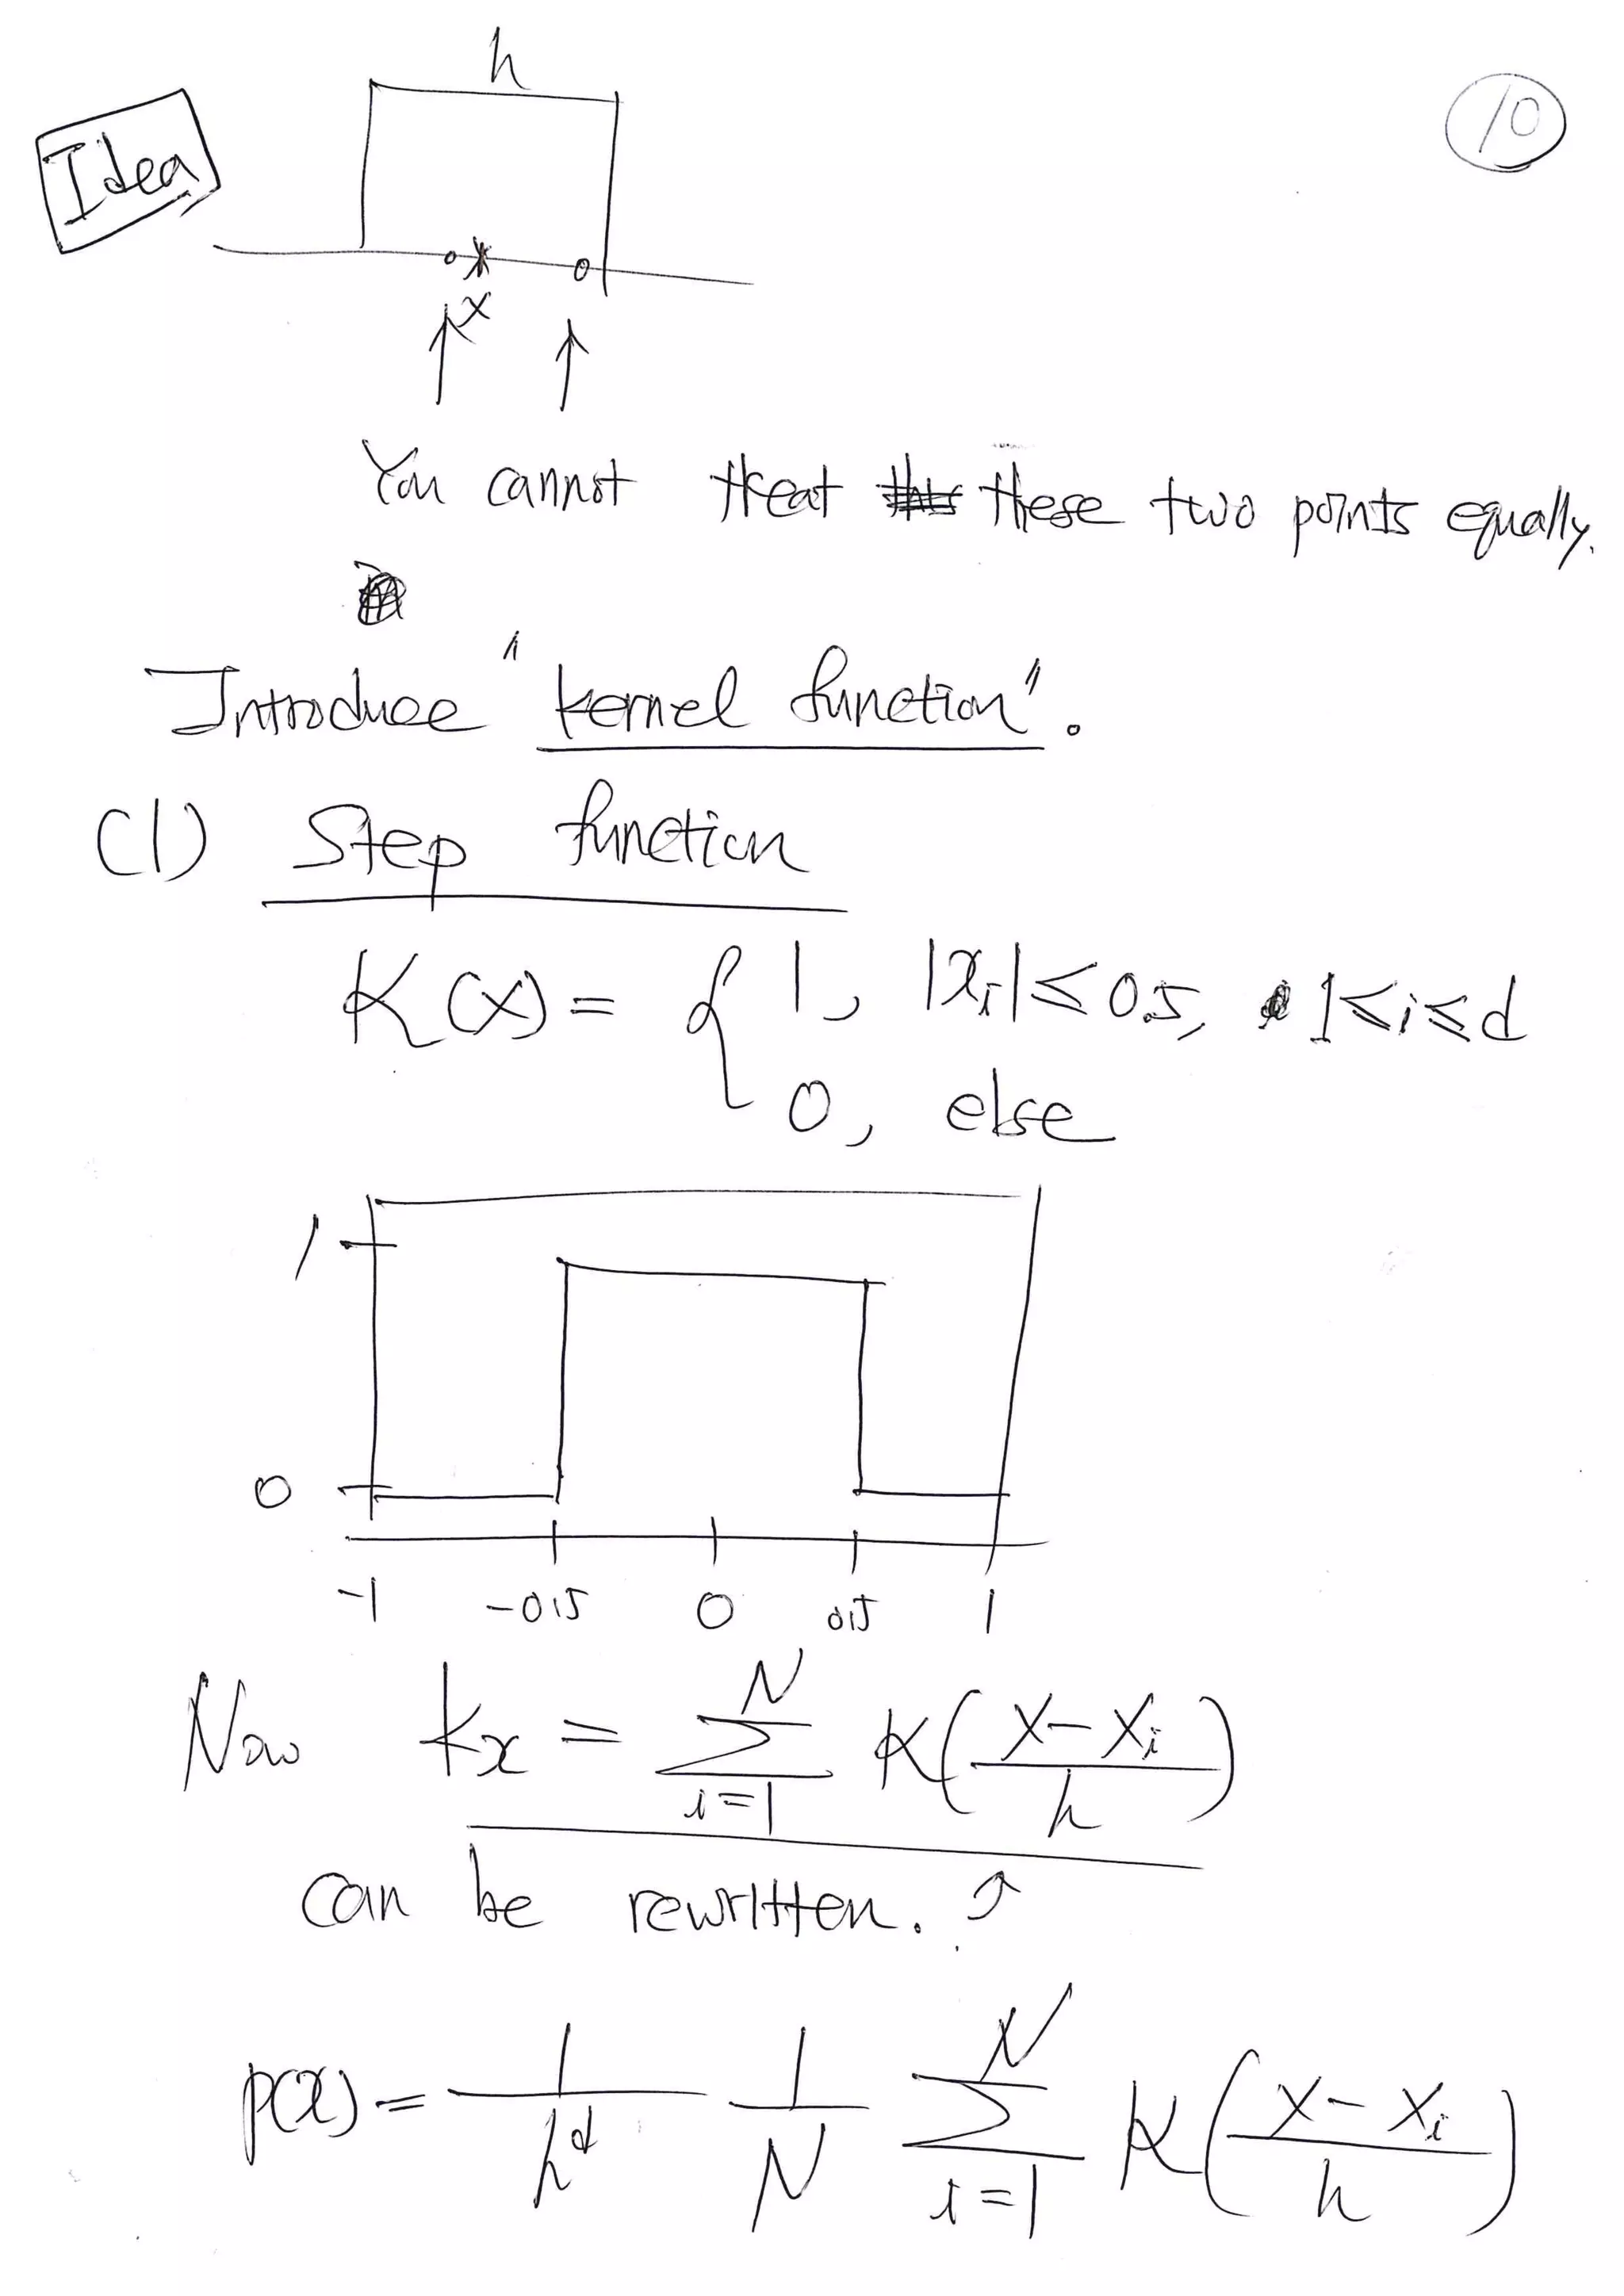 h
10
Idea
x
You cannot treat these two points equally.
Introduce "kernel function".
(1) Step function
K(x) = { 1, |xᵢ| ≤ 0.5, 1 ≤ i ≤ d
0, else
1
0
-1 -0.5 0 0.5 1
Now kx = Σ_{i=1}^{N} K((x - xᵢ)/h)
can be rewritten. ↑
p(x) = 1/h^d 1/N Σ_{i=1}^{N} K((x - xᵢ)/h)